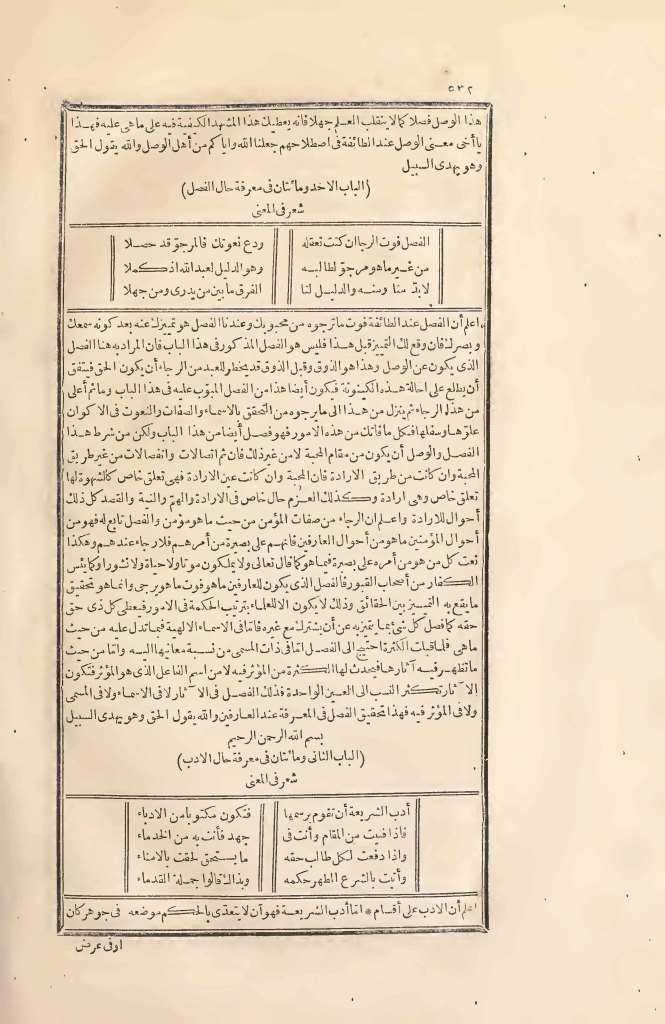 ٥٣٢
هذا الوصل فصلا كما لا ينقلب العلم جهلا فانه يعطيك هذا المشهد الكيفية فيه على ما هى عليه فهذا
يا أخى معنى الوصل عند الطائفة فى اصطلاحهم جعلنا الله واياكم من أهل الوصل والله يقول الحق
وهو يهدى السبيل
(الباب الاحد ومائتان فى معرفة حال الفصل)
شعر فى المعنى
الفصل فوت الرجا ان كنت تعقله ودع نعوتك فالمرجو قد حصلا
من غير ما هو مرجو لطالبه وهو الدليل لعبد الله اذ كملا
لا بد منا ومنه والدليل لنا الفرق ما بين من يدرى ومن جهلا
اعلم أن الفصل عند الطائفة فوت ما ترجوه من محبوبك وعندنا الفصل هو تمييزك عنه بعد كونه سمعك
وبصرك فان وقع لك التمييز قبل هذا فليس هو الفصل المذكور فى هذا الباب فان المراد به هنا الفصل
الذى يكون عن الوصل وهذا هو الذوق وقبل الذوق قد يخطر للعبد من الرجاء أن يكون الحق فيتفق
أن يطلع على احالة هذه الكينونة فيكون أيضا هذا من الفصل المبوب عليه فى هذا الباب وما ثم أعلى
من هذا الرجاء ثم ينزل من هذا الى ما يرجوه من التحقق بالاسماء والصفات والنعوت فى الاكوان
علوها وسفلها فكل ما فاتك من هذه الامور فهو فصل أيضا من هذا الباب ولكن من شرط هذا
الفصل والوصل أن يكون من مقام المحبة لا من غير ذلك فان ثم اتصالات وانفصالات من غير طريق
المحبة وان كانت من طريق الارادة فان المحبة وان كانت عين الارادة فهى تعلق خاص كالشهوة لها
تعلق خاص وهى ارادة وكذلك العزم حال خاص فى الارادة والهم والنية والقصد كل ذلك
أحوال للارادة واعلم ان الرجاء من صفات المؤمن من حيث ما هو مؤمن والفصل تابع له فهو من
أحوال المؤمنين ما هو من أحوال العارفين فانهم على بصيرة من أمرهم فلا رجاء عندهم وهكذا
نعت كل من هو من أمره على بصيرة فيما هو كما قال تعالى ولا يملكون موتا ولا حياة ولا نشورا وكما يئس
الكفار من أصحاب القبور فالفصل الذى يكون للعارفين ما هو فوت ما هو يرجى وانما هو تحقيق
ما يقع به التمييز بين الحقائق وذلك لا يكون الا للعلماء بترتيب الحكمة فى الامور فيعطى كل ذى حق
حقه كما فصل كل شئ بما يتميز به عن أن يشترك مع غيره فاتنا فى الاسماء الالهية فيما تدل عليه من حيث
ما هى فلما قبلت الكثرة احتيج الى الفصل اما فى ذات المسمى من نسبة معانيها اليه واما من حيث
ما تظهر فيه آثارها فيحدث لها الكثرة من المؤثر فيه لا من اسم الفاعل الذى هو المؤثر فتكون
الآثار تكثر النسب الى العين الواحدة فذلك الفصل فى الآثار لا فى الاسماء ولا فى المسمى
ولا فى المؤثر فيه فهذا تحقيق الفصل فى المعرفة عند العارفين والله يقول الحق وهو يهدى السبيل
بسم الله الرحمن الرحيم
(الباب الثانى ومائتان فى معرفة حال الادب)
شعر فى المعنى
أدب الشريعة أن تقوم برسمها فتكون مكتوبا من الادباء
فاذا فنيت من المقام وأنت فى جهد فأنت به من الخدماء
واذا دفعت لكل طالب حقه ما يستحق لحقت بالامناء
وأتيت بالشرع المطهر حكمه وبذاك قالوا جملة القدماء
اعلم أن الادب على أقسام * اما أدب الشريعة فهو أن لا يتعدى بالحكم موضعه فى جوهر كان
اوفى عرض